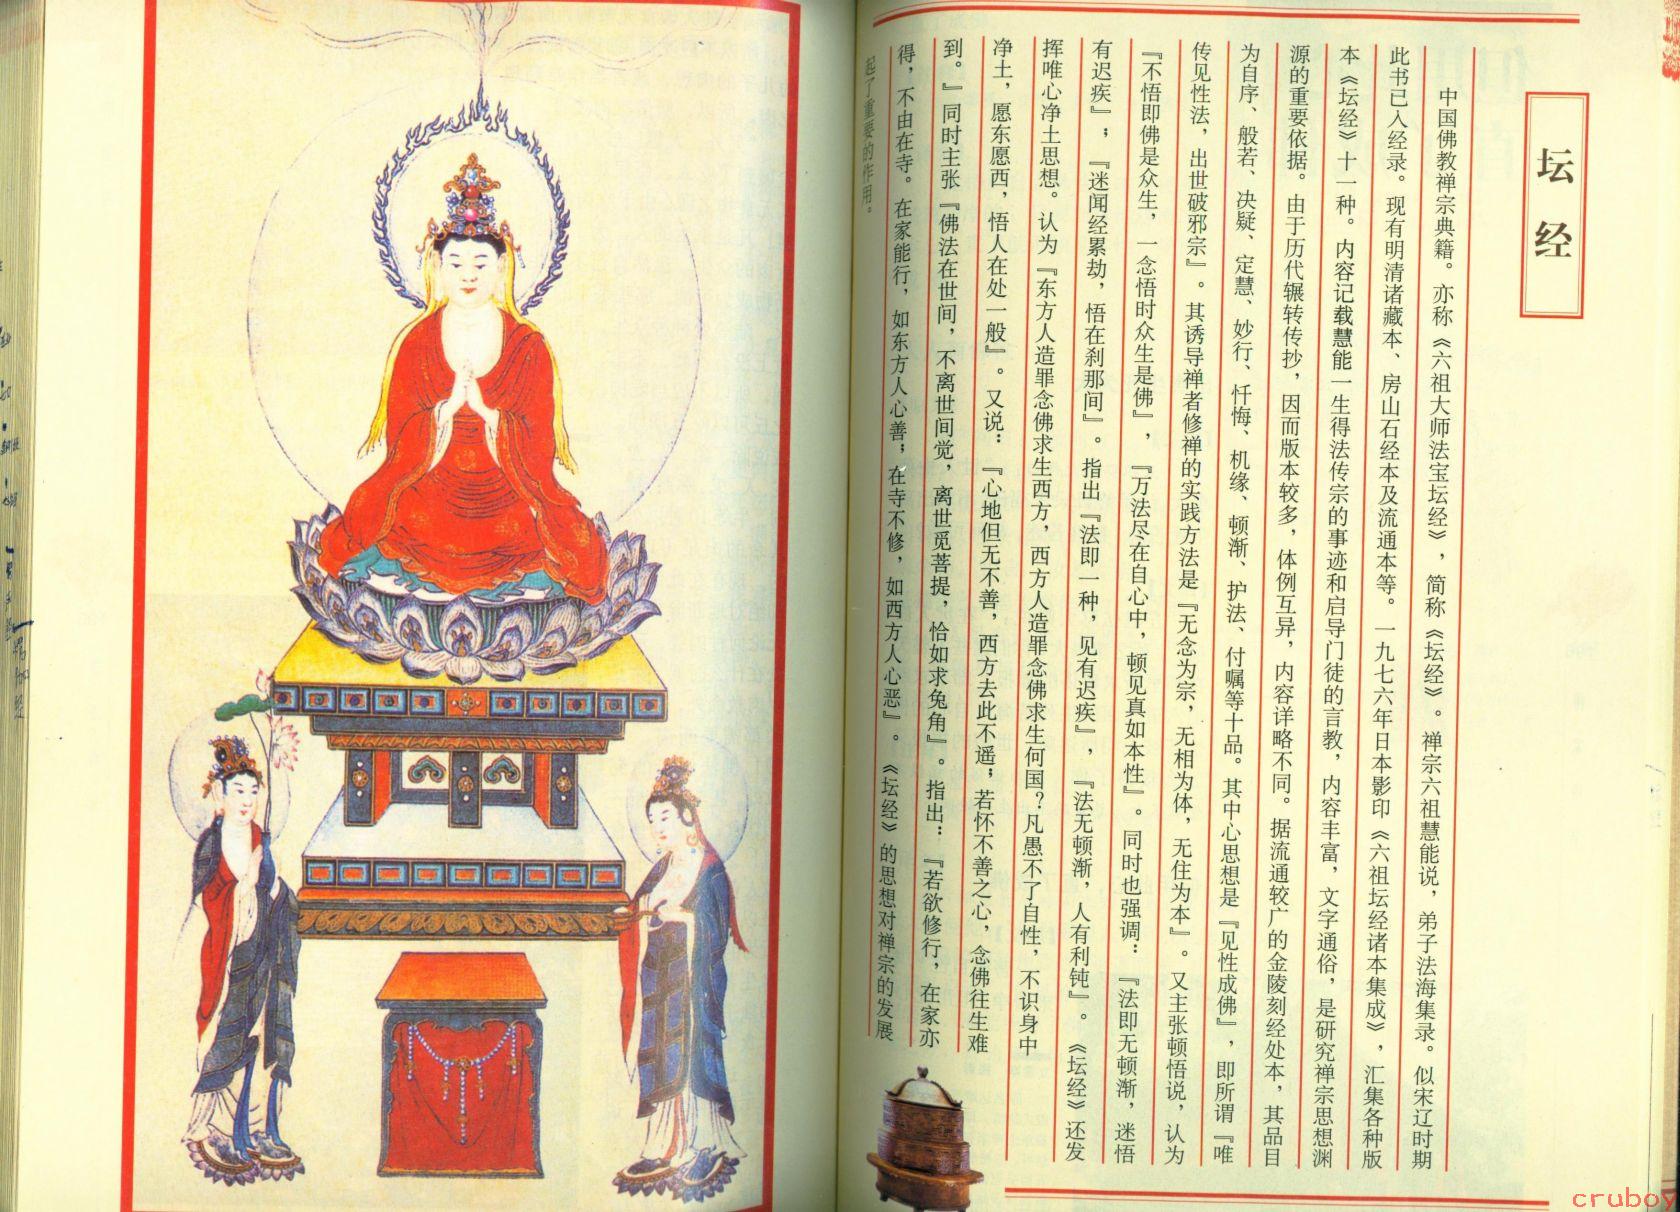 坛经
中国佛教禅宗典籍。亦称《六祖大师法宝坛经》，简称《坛经》。禅宗六祖慧能说，弟子法海集录。似宋辽时期
此书已入经录。现有明清诸藏本、房山石经本及流通本等。一九七六年日本影印《六祖坛经诸本集成》，汇集各种版
本《坛经》十一种。内容记载慧能一生得法传宗的事迹和启导门徒的言教，内容丰富，文字通俗，是研究禅宗思想渊
源的重要依据。由于历代辗转传抄，因而版本较多，体例互异，内容详略不同。据流通较广的金陵刻经处本，其品目
为自序、般若、决疑、定慧、妙行、忏悔、机缘、顿渐、护法、付嘱等十品。其中心思想是『见性成佛』，即所谓『唯
传见性法，出世破邪宗』。其诱导禅者修禅的实践方法是『无念为宗，无相为体，无住为本』。又主张顿悟说，认为
『不悟即佛是众生，一念悟时众生是佛』，『万法尽在自心中，顿见真如本性』。同时也强调：『法即无顿渐，迷悟
有迟疾』；『迷闻经累劫，悟在刹那间』。指出『法即一种，见有迟疾』，『法无顿渐，人有利钝』。《坛经》还发
挥唯心净土思想。认为『东方人造罪念佛求生西方，西方人造罪念佛求生何国？凡愚不了自性，不识身中
净土，愿东愿西，悟人在处一般』。又说：『心地但无不善，西方去此不遥；若怀不善之心，念佛往生难
到。』同时主张『佛法在世间，不离世间觉，离世觅菩提，恰如求兔角』。指出：『若欲修行，在家亦
得，不由在寺。在家能行，如东方人心善；在寺不修，如西方人心恶』。《坛经》的思想对禅宗的发展
起了重要的作用。
cruboy